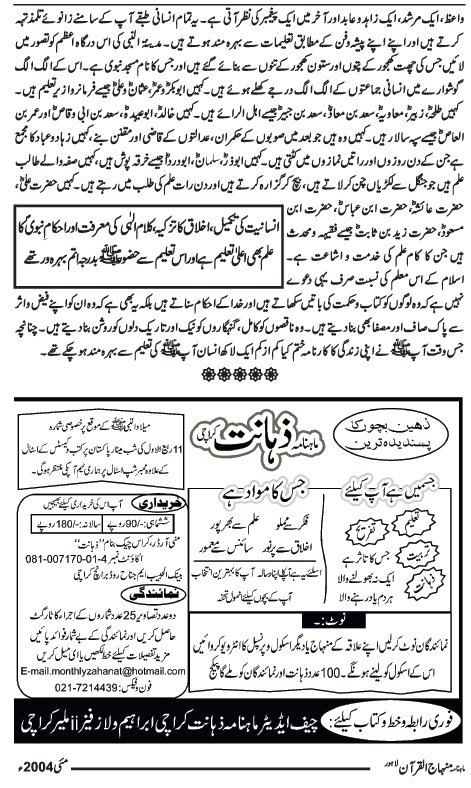 واعظ، ایک مرشد، ایک زاہد و عابد اور آخر میں ایک پیغمبر کی نظر آتی ہے۔ یہ تمام انسانی طبقے آپ کے سامنے زانوئے تلمذ تہہ
کرتے ہیں اور اپنے اپنے پیشہ و فن کے مطابق تعلیمات سے بہرہ مند ہوتے ہیں۔ مدینۃ النبی کی اس درگاہ اعظم کو تصور میں
لائیں جس کی چھت کھجور کے پتوں اور ستون کھجور کے تنوں سے بنائے گئے ہیں اور جس کا نام مسجد نبوی ہے۔ اس کے الگ الگ
گوشوارے میں انسانی جماعتوں کے الگ الگ درجے کھلے ہوئے ہیں۔ کہیں ابوبکرؓ عمرؓ عثمانؓ و علیؓ جیسے فرمانروا زیر تعلیم ہیں۔
کہیں طلحہؓ، زبیرؓ، معاویہؓ، سعد بن معاذؓ، سعد بن جبیرؓ جیسے اہل الرائے ہیں۔ کہیں خالدؓ، ابوعبیدہؓ، سعد بن ابی وقاصؓ اور عمر بن
العاصؓ جیسے سپہ سالار ہیں۔ کہیں وہ ہیں جو بعد میں صوبوں کے حکمران، عدالتوں کے قاضی اور مقنن بنے، کہیں زہاد و عباد کا مجمع
ہے جن کے دن روزوں اور راتیں نمازوں میں کٹتی ہیں۔ کہیں ابوذرؓ، سلمانؓ، ابودرداؓ جیسے خرقہ پوش ہیں، کہیں صفہ والے طالب
علم ہیں جو جنگل سے لکڑیاں چن کر لاتے ہیں، بیچ کر گزارہ کرتے ہیں اور دن رات علم کی طلب میں رہتے ہیں۔ کہیں حضرت علیؓ،
حضرت عائشہؓ، حضرت ابن عباسؓ، حضرت ابن
مسعودؓ، حضرت زید بن ثابتؓ جیسے فقیہہ و محدث
ہیں جن کا کام علم کی خدمت و اشاعت ہے۔
اسلام کے اس معلم کی نسبت صرف یہی دعوے
انسانیت کی تکمیل، اخلاق کا تزکیہ، کلام الٰہی کی معرفت اور احکام نبوی کا
علم بھی اعلیٰ تعلیم ہے اور اس تعلیم سے حضور ﷺ بدرجہ اتم بہرہ ور تھے
نہیں ہے کہ وہ لوگوں کو کتاب و حکمت کی باتیں سکھاتے ہیں اور خدا کے احکام سناتے ہیں بلکہ یہ بھی ہے کہ وہ ان کو اپنے فیض و اثر
سے پاک صاف اور مصفا بھی بنا دیتے ہیں۔ وہ ناقصوں کو کامل، گنہگاروں کو نیک اور تاریک دلوں کو روشن بنا دیتے ہیں۔ چنانچہ
جس وقت آپ ﷺ نے اپنی زندگی کا کارنامہ ختم کیا کم از کم ایک لاکھ انسان آپ ﷺ کی تعلیم سے بہرہ مند ہو چکے تھے۔
ذہین بچوں کا
پسندیدہ ترین
ماہنامہ ذہانت کراچی
میلاد النبی ﷺ کے موقع پر خصوصی شمارہ
11 ربیع الاول کی شب مینار پاکستان پر کتب و کیسٹس کے اسٹال
کے علاوہ ممبر شپ اسٹال پر ہماری ٹیم آپکی منتظر ہوگی۔
جسمیں ہے آپ کیلئے
تعلیم
تفریح
تربیت
ذہانت
جس کا تاثر ہے
ایک نہ بھولنے والا
ہر دم یاد رہنے والا
جس کا مواد ہے
فکر سے مملو
علم سے بھرپور
اخلاق سے پرنور
سائنس سے معمور
اسلئے یہ ہے آپکا اپنا رسالہ آپ کا بہترین انتخاب
آپ کے بچوں کیلئے انمول تحفہ
خریداری
آپ اس کی خریداری کیلئے بھیجیں
ششماہی:-/90 روپے
سالانہ:-/180 روپے
منی آرڈر، کراس چیک بنام "ذہانت"
اکاؤنٹ نمبر 4-01-007170-081
بینک الحبیب ایم جناح روڈ برانچ کراچی
نمائندگی
دو عدد تصاویر 25 عدد شماروں کے اجراء کا ٹارگٹ
حاصل کریں اور نمائندگی کے بے شمار فوائد پائیں
مزید تفصیلات کیلئے خط لکھیں یا ای میل کریں
E-mail.monthlyzahanat@hotmail.com
فون و فیکس: 021-7214439
نوٹ:۔
نمائندگان نوٹ کرلیں اپنے علاقہ کے منہاج یا دیگر اسکول و پرنسپل کا انٹرویو کروائیں
اس کے اسکول کو لینے ہونگے۔ 100 عدد ذہانت اور نمائندگان کو ملے گا پیکج
فوری رابطہ و خط و کتاب کیلئے:
چیف ایڈیٹر ماہنامہ ذہانت کراچی ابراہیم ولاز فیز ii ملیر کراچی
ماہنامہ منہاج القرآن لاہور
مئی 2004ء